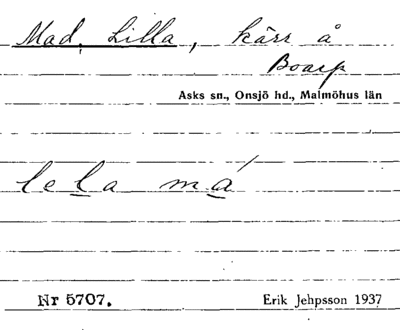 Mad, Lilla, kärr å
Boarp
Asks sn., Onsjö hd., Malmöhus län
lela má
Nr 5707. Erik Jehpsson 1937